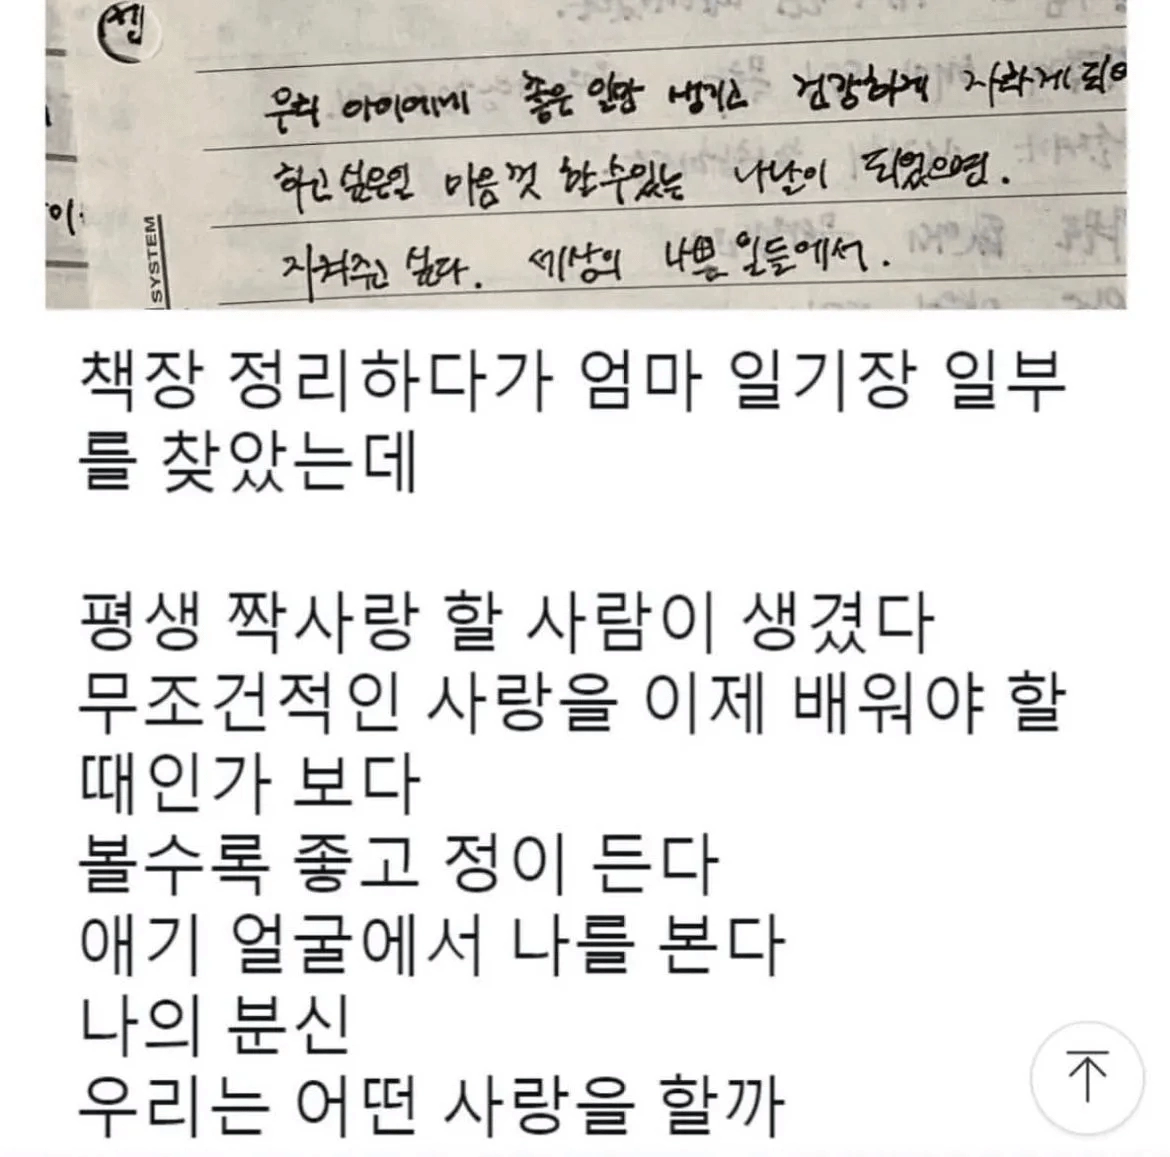 우리 아이에게 좋은 일만 생기고 건강하게 자라게 되어
하고 싶은일 마음껏 할 수 있는 나날이 되었으면.
지켜주고 싶다. 세상의 나쁜 일들에서.
SYSTEM
책장 정리하다가 엄마 일기장 일부
를 찾았는데
평생 짝사랑 할 사람이 생겼다
무조건적인 사랑을 이제 배워야 할
때인가 보다
볼수록 좋고 정이 든다
애기 얼굴에서 나를 본다
나의 분신
우리는 어떤 사랑을 할까